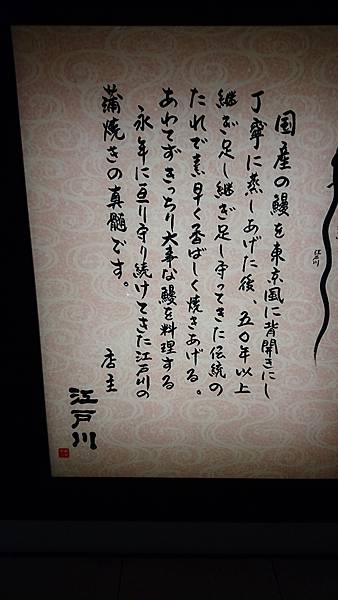 国産の鰻を東京風に背開きにし
丁寧に蒸しあげた後、五〇年以上
継ぎ足し継ぎ足し守ってきた伝統の
たれで素早く香ばしく焼きあげる。
あわてずきっちり大事な鰻を料理する
永年に亘り守り続けてきた江戸川の
蒲焼きの真髄です。
店主
江戸川
江戸川